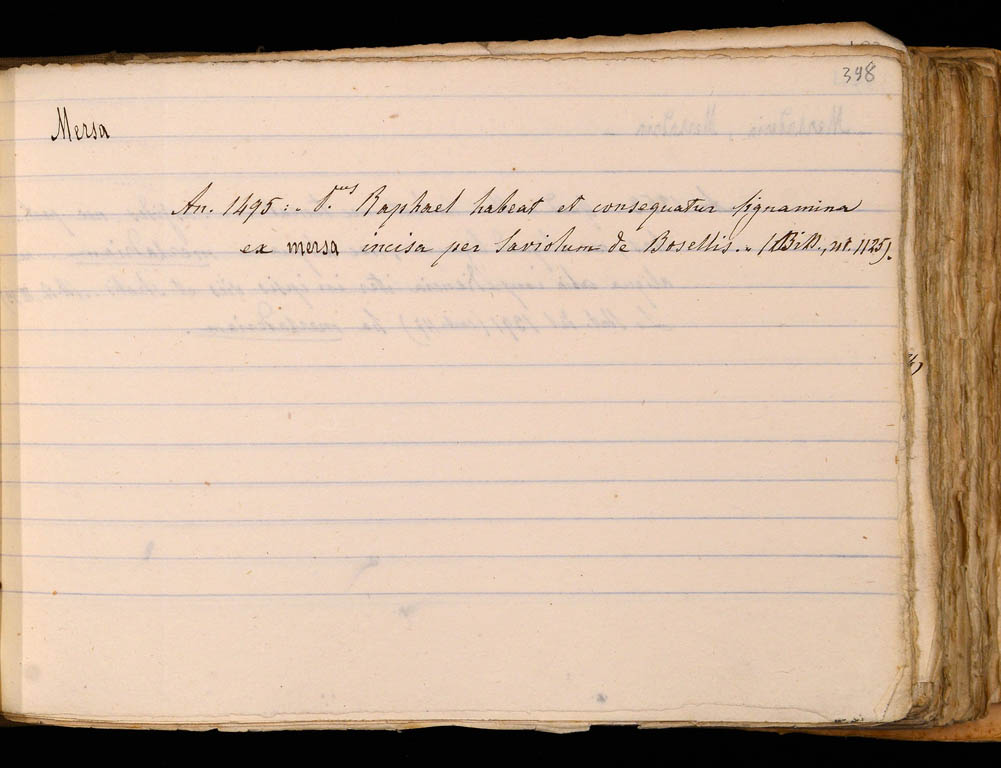 398
Mersa
An. 1495: „ d.nus Raphael habeat et consequatur lignamina
ex mersa incisa per Saviolum de Bosellis. „ (Bibl., nt. 1125).